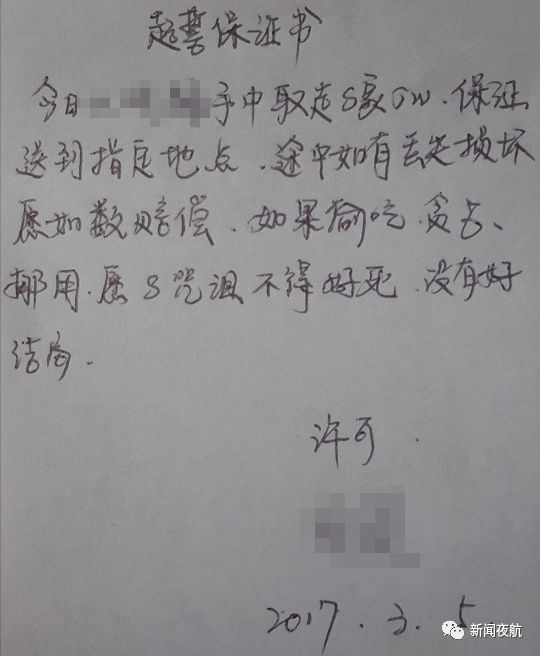 起誓保证书
今日 手中取走S家5W.保证
送到指定地点.途中如有丢失损坏
愿如数赔偿.如果偷吃.贪占、
挪用.愿S咒诅不得好死.没有好
结局.
许可.
2017.3.5
新闻夜航